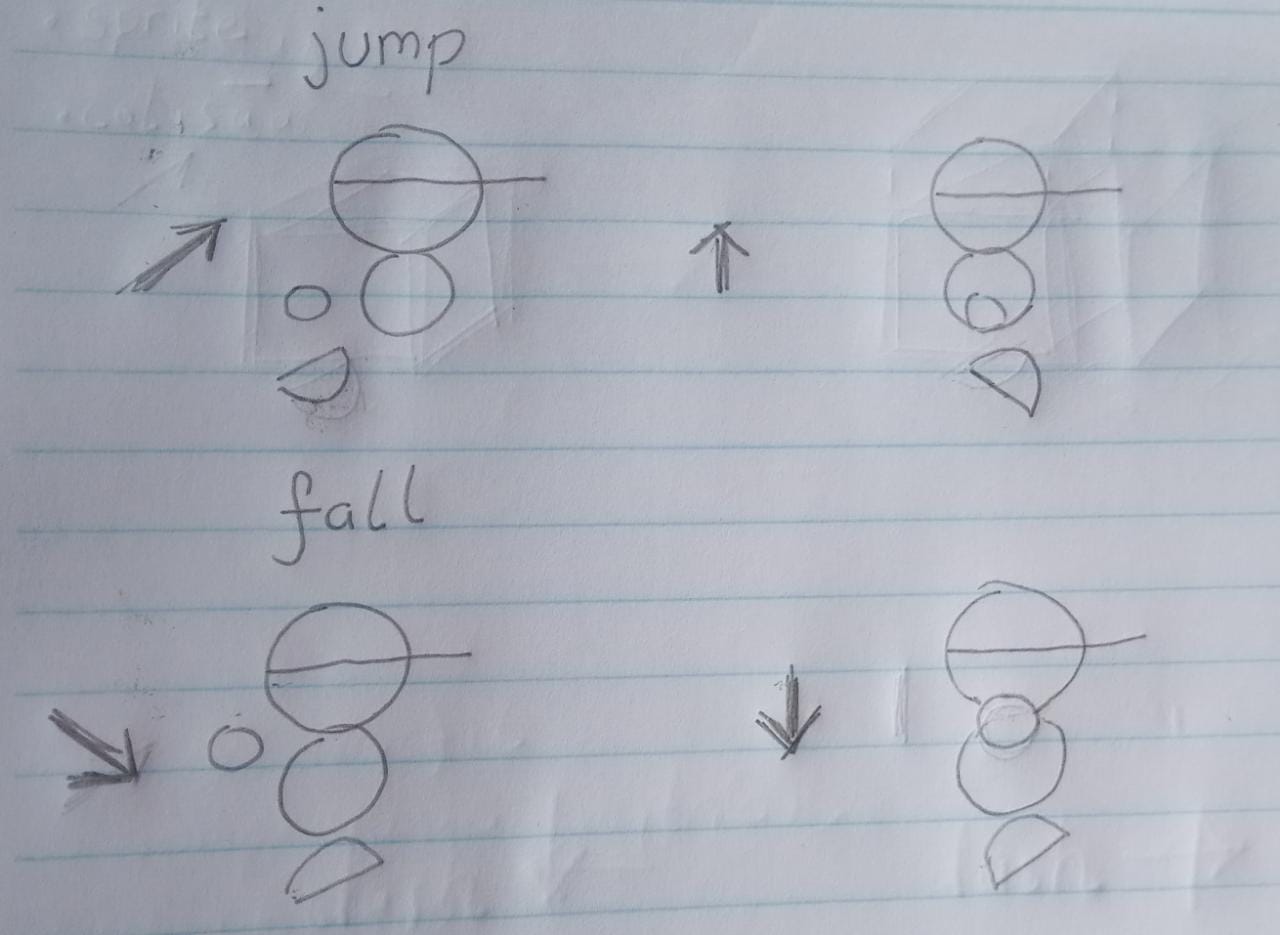 jump
fall